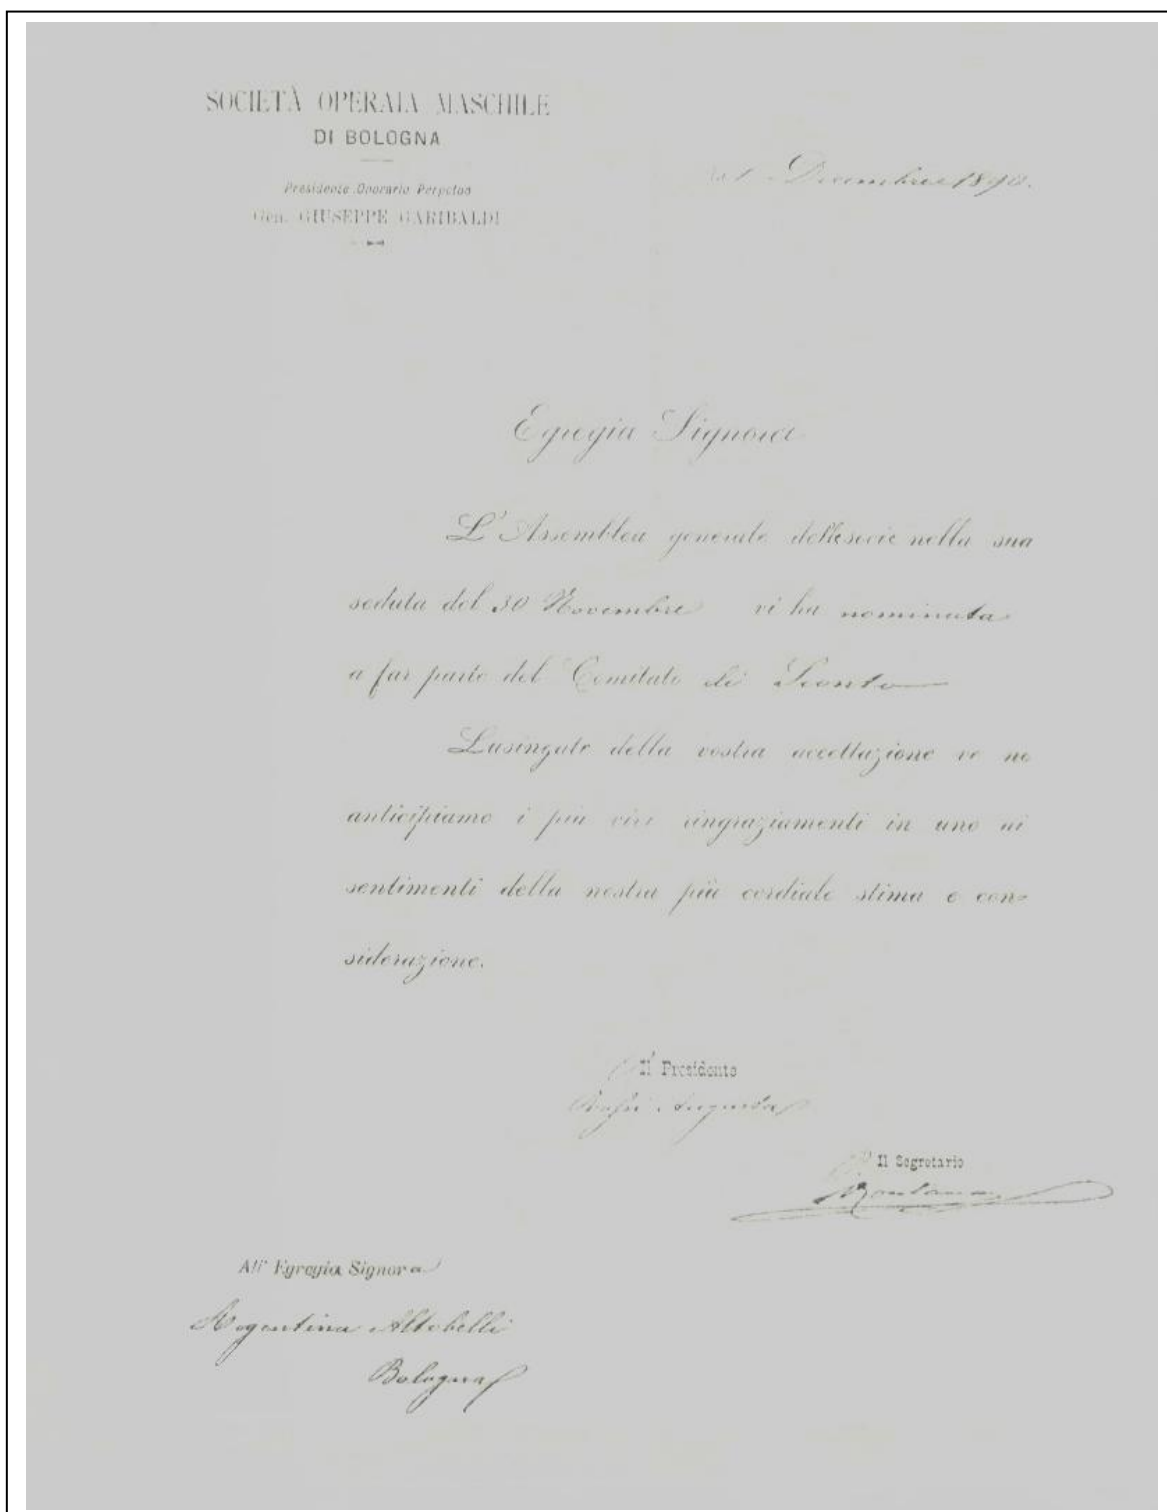 SOCIETÀ OPERAIA MASCHILE
DI BOLOGNA
Presidente Onorario Perpetuo
Gen. GIUSEPPE GARIBALDI
1 Decembre 1890.
Egregia Signora
L'Assemblea generale delle socie nella sua
seduta del 30 Novembre vi ha nominata
a far parte del Comitato di Sconto
Lusingate della vostra accettazione ve ne
anticipiamo i più vivi ringraziamenti in uno ai
sentimenti della nostra più cordiale stima e con=
siderazione.
Il Presidente
Augusta
Il Segretario
All' Egregia Signora
Argentina Altobelli
Bologna